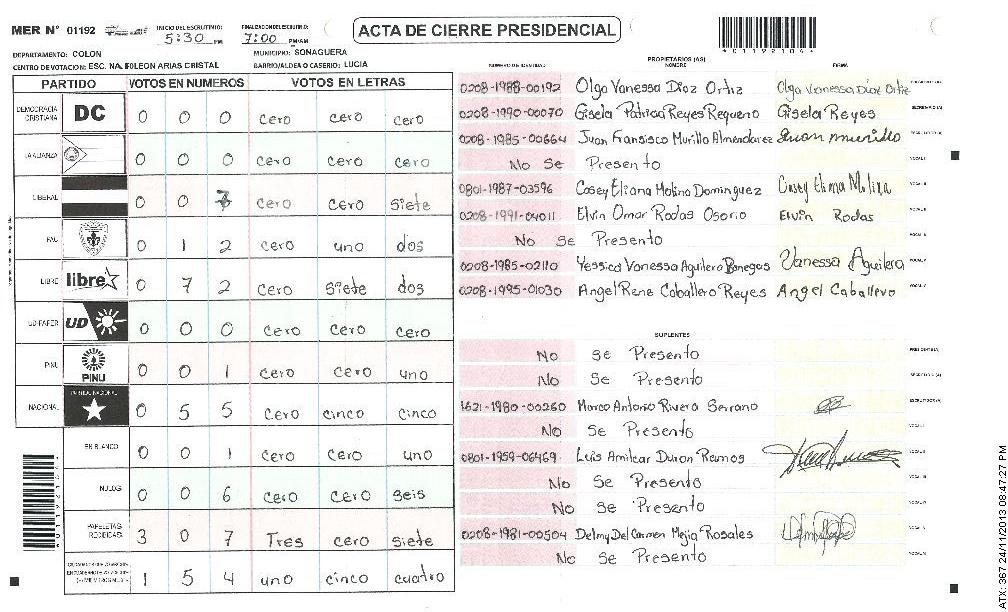 MER N° 01192
INICIO DEL ESCRUTINIO: 5:30 PM
FINALIZACION DEL ESCRUTINIO: 7:00 PM/AM
ACTA DE CIERRE PRESIDENCIAL
*01192104*
DEPARTAMENTO: COLON
MUNICIPIO: SONAGUERA
CENTRO DE VOTACION: ESC. NAPOLEON ARIAS CRISTAL
BARRIO/ALDEA O CASERIO: LUCIA
PARTIDO VOTOS EN NUMEROS VOTOS EN LETRAS
DEMOCRACIA CRISTIANA DC 0 0 0 cero cero cero
LA ALIANZA 0 0 0 cero cero cero
LIBERAL 0 0 7 cero cero siete
PAC 0 1 2 cero uno dos
LIBRE libre 0 7 2 cero siete dos
UD-FAPER UD 0 0 0 cero cero cero
PINU PINU 0 0 1 cero cero uno
NACIONAL PARTIDO NACIONAL 0 5 5 cero cinco cinco
EN BLANCO 0 0 1 cero cero uno
NULOS 0 0 6 cero cero seis
PAPELETAS RECIBIDAS: 3 0 7 Tres cero siete
1 5 4 uno cinco cuatro
*01192104*
PROPIETARIOS (AS)
NUMERO DE IDENTIDAD NOMBRE FIRMA
0208-1988-00192 Olga Vanessa Díaz Ortiz Olga Vanessa Díaz Ortiz
0208-1990-00070 Gisela Patrica Reyes Requeno Gisela Reyes SECRETARIO (A)
0208-1985-00664 Juan Fransisco Murillo Almendarez Juan murillo
No Se Presento VOCAL I
0801-1987-03596 Cosey Eliana Molina Dominguez Cosey Elima Molina
0208-1991-04011 Elvin Omar Rodas Osorio Elvin Rodas
No Se Presento
0208-1985-02110 Yessica Vanessa Aguilera Banegas Vanessa Aguilera
0208-1995-01030 Angel Rene Caballero Reyes Angel Caballero
SUPLENTES
No Se Presento PRESIDENTE (A)
No Se Presento SECRETARIO (A)
1621-1980-00260 Marco Antonio Rivera Serrano ESCRUTADOR (A)
No Se Presento
0801-1959-06469 Luis Amilcar Duron Ramos
No Se Presento
No Se Presento
0208-1981-00504 Delmy Del Carmen Mejia Rosales
No Se Presento
ATX: 367 24/11/2013 08:47:27 PM